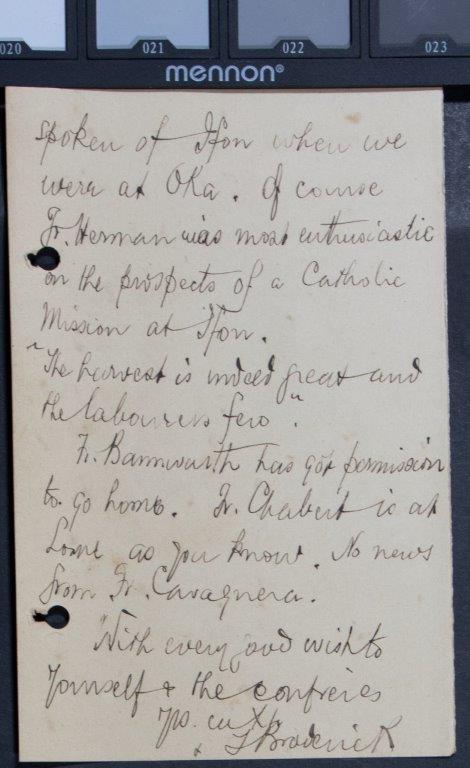 020 021 022 023
mennon®
spoken of Ifon when we
were at Oka. Of course
Fr. Herman was most enthusiastic
on the prospects of a Catholic
Mission at Ifon.
"The harvest is indeed great and
the labourers few".
Fr. Bannwarth has got permission
to go home. Fr. Chabert is at
Lome as you know. No news
from Fr. Cavagnera.
With every good wish to
yourself & the confreres
Yrs. in Xt.
+ T Broderick